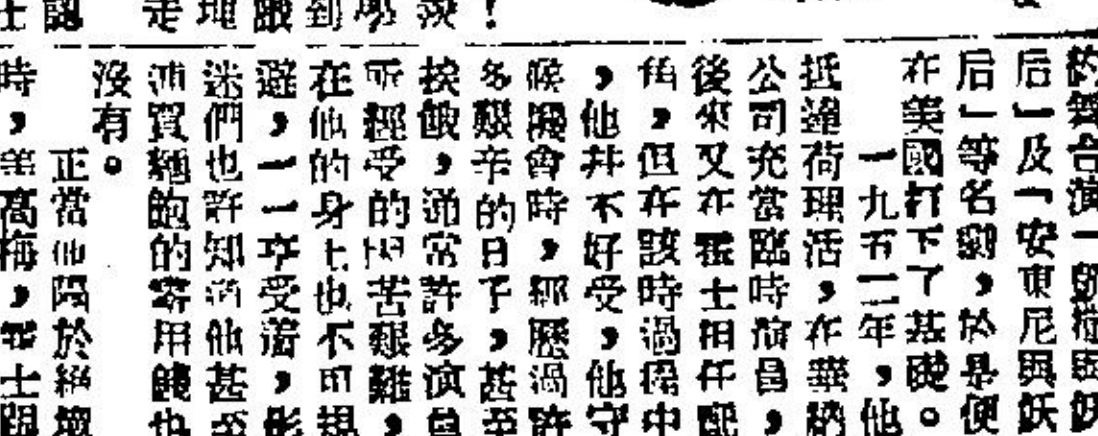 士認　走埋頭到學　！
后」及「安東尼與妖
后」等名劇，於是便
在美國打下了基礎。
一九五二年，他
抵達荷理活，在華納
公司充當臨時演員，
後來又在霍士担任配
角，但在該時過中
，他并不好受，他守
候機會時，經歷過許
多艱辛的日子，甚至
挨餓，通常許多演員
所經受的困苦艱難，
在他的身上也不可規
避，一一享受着，影
迷們也許知道他甚至
連買麵飽的零用錢也
沒有。
正當他陷於絕
時，美高梅，霍士